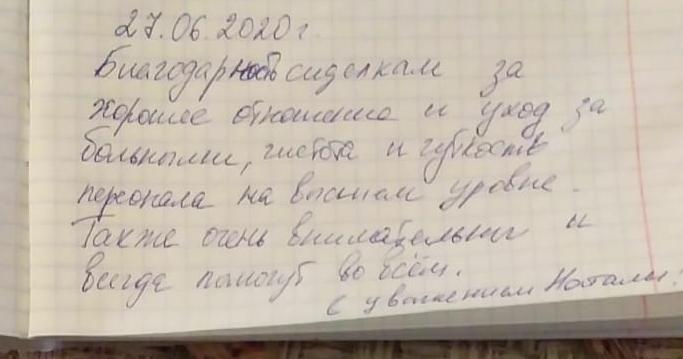 27.06.2020г
Благодарность сиделкам за
хорошее отношение и уход за
больными, чистота и чуткость
персонала на высшем уровне.
Также очень внимательны и
всегда помогут во всём.
С уважением Наталья